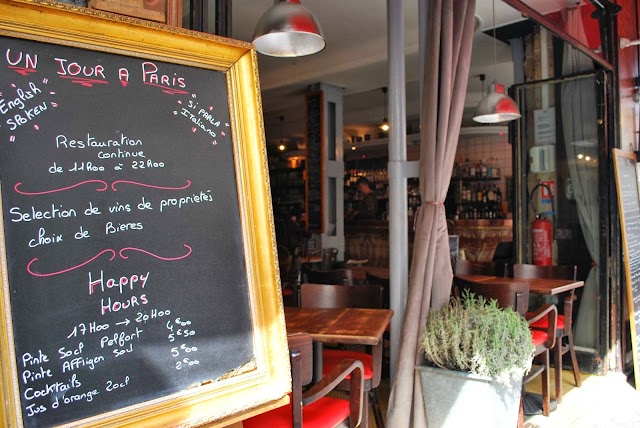 UN JOUR A PARIS
English
SPOKEN
Si PARLA
Italiano
Restauration
continue
de 11H00 à 22H00
Selection de vins de proprietés
choix de Bieres
Happy
HOURS
17H00 → 20H00
Pinte 50cl Pelfort 4€00
Pinte Affligen 50cl 5€50
Cocktails 5€00
Jus d'orange 20cl 2€00